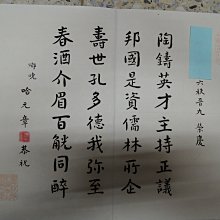 六秩晋九 榮慶
陶鑄英才主持正議
邦國是資儒林所企
壽世孔多德我弥至
春酒介眉百觥同醉
鄉晚 哈元章 恭祝